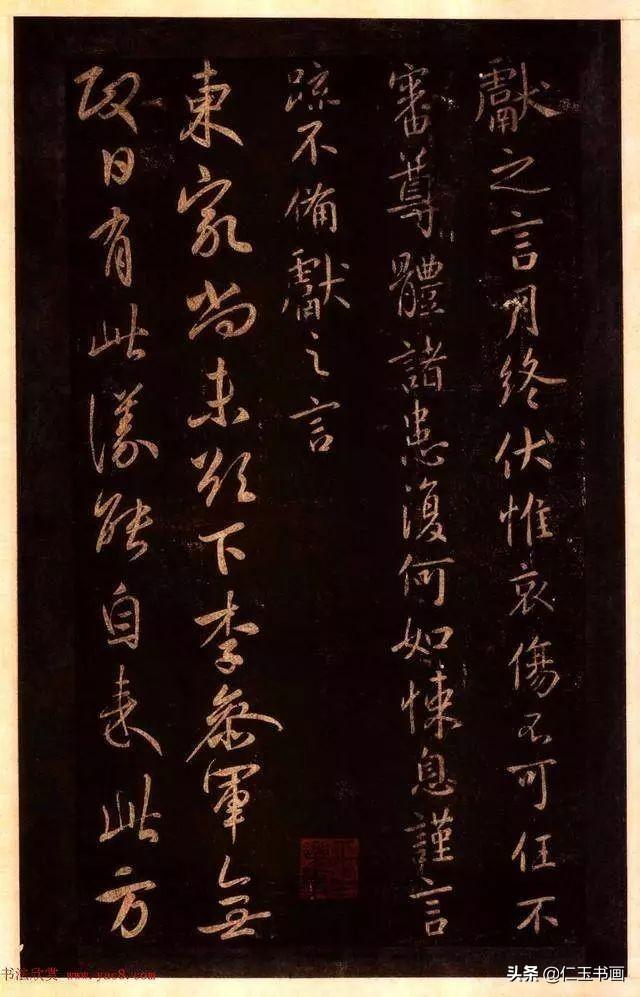 獻之言月終伏惟哀傷不可任不
審尊體諸患復何如悚息謹言
疏不備獻之言
東家尚未欲下李叅軍無
日有此能自来此方
书法欣赏 www.yac8.com
头条 @仁玉书画